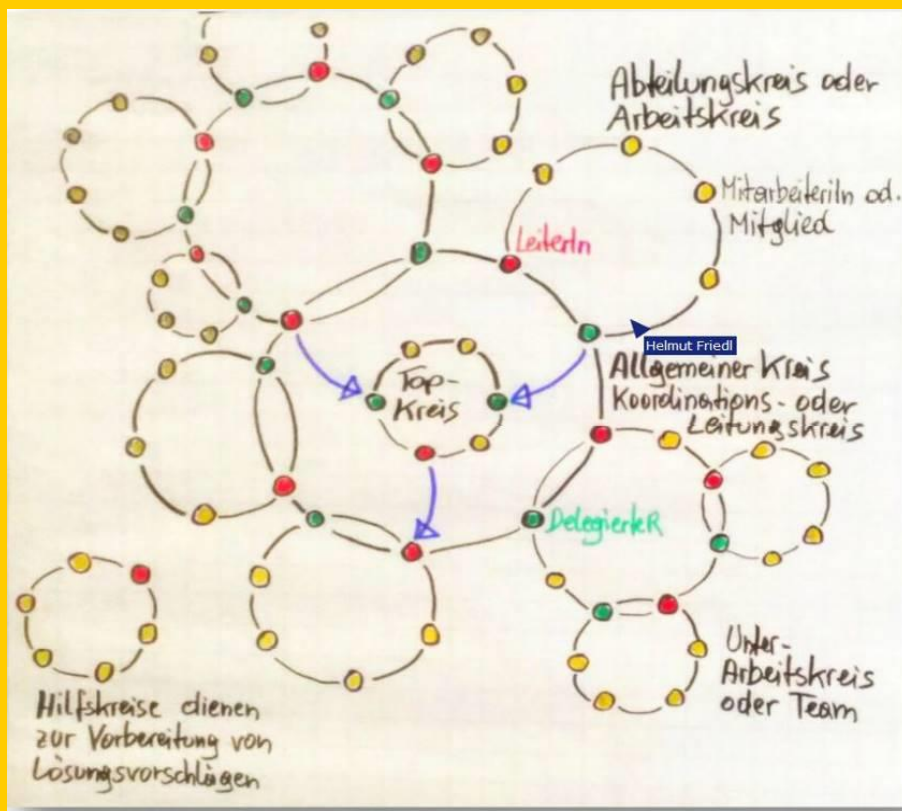 Abteilungskreis oder
Arbeitskreis
MitarbeiterIn od.
Mitglied
LeiterIn
Helmut Friedl
Top-
Kreis
Allgemeiner Kreis
Koordinations- oder
Leitungskreis
DelegierteR
Unter-
Arbeitskreis
oder Team
Hilfskreise dienen
zur Vorbereitung von
Lösungsvorschlägen